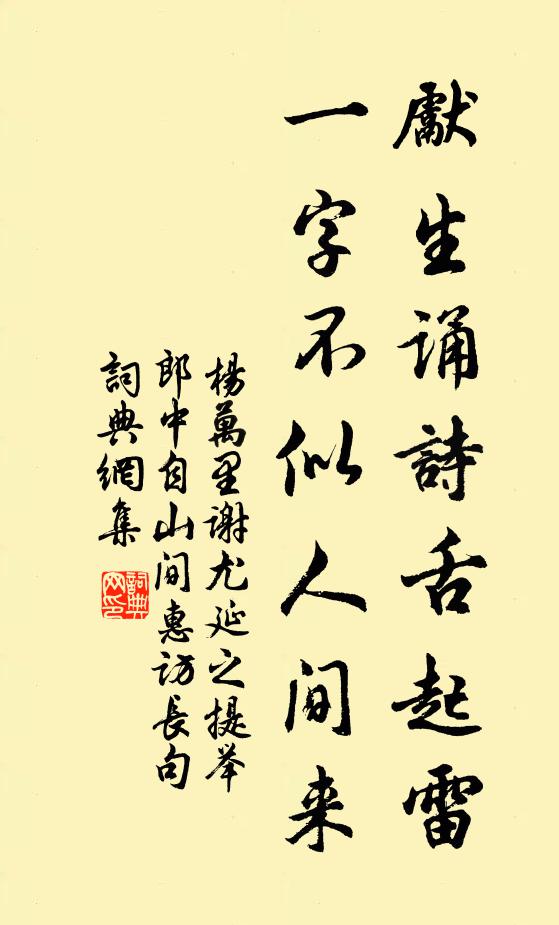 獻生誦詩舌起雷
一字不似人间来
楊萬里谢尤延之提举
郎中自山间惠访長句
詞典網集
詞典网印